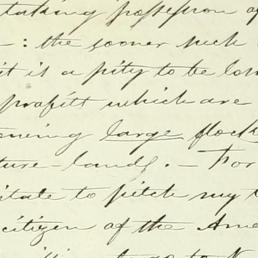 taking possession of
- : the sooner such
it is a pity to be
profitt which are
large flock
ture lands. - For
itate to pitch my
citizen of the Ame